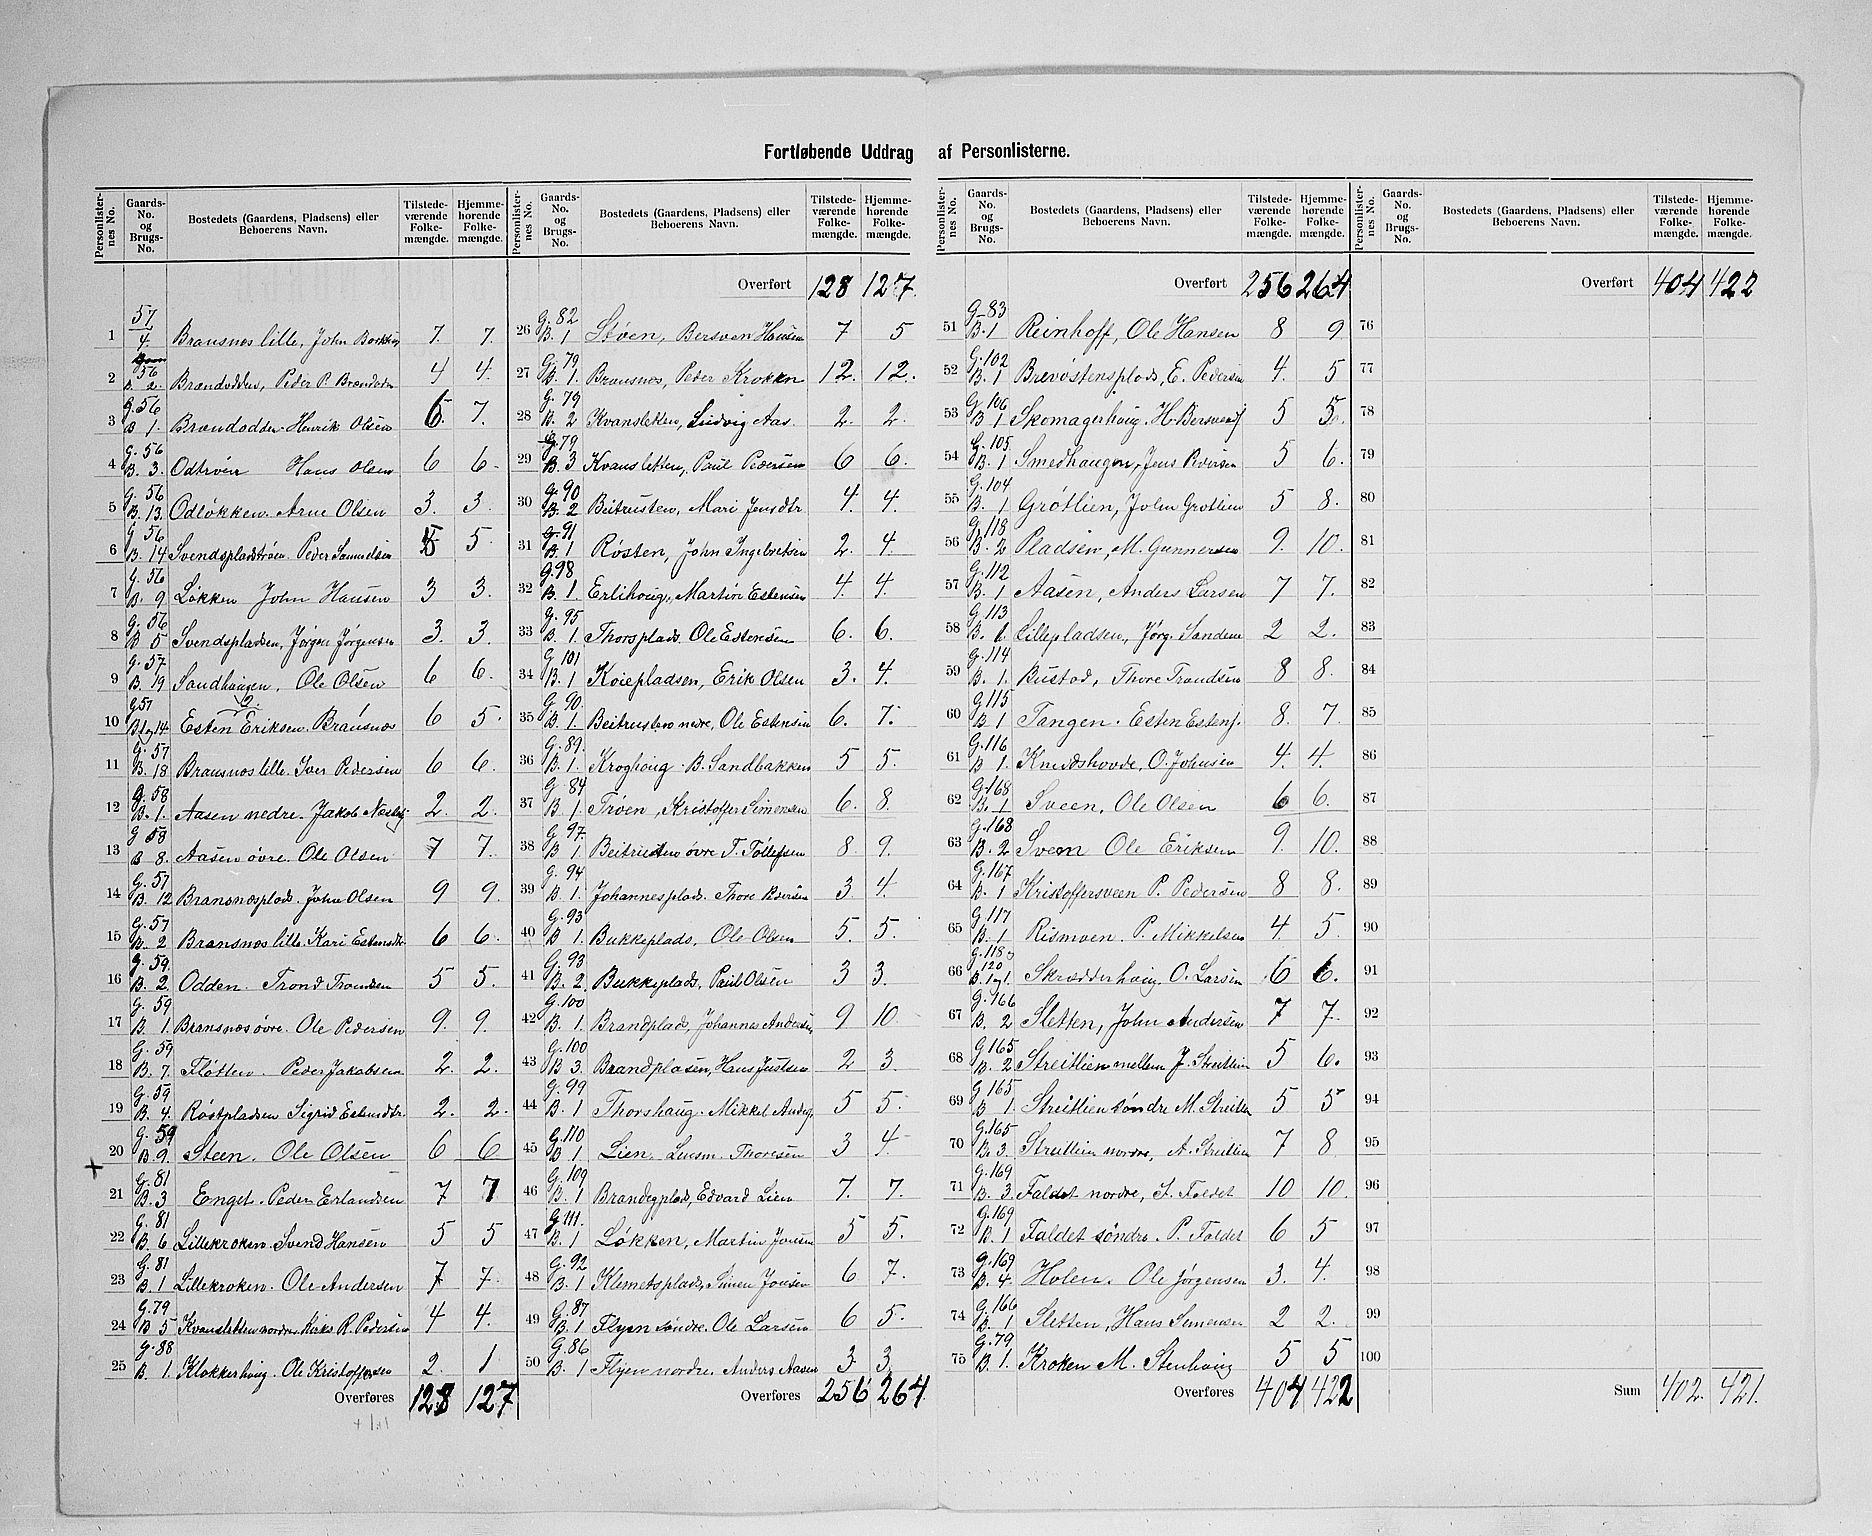 Fortløbende Uddrag af Personlisterne.
Personlister-nes No. | Gaards-No. og Brugs-No. | Bostedets (Gaardens, Pladsens) eller Beboerens Navn. | Tilstede-værende Folke-mængde. | Hjemme-hørende Folke-mængde.
1 | 57 4 | Brausnes lille, John | 7. | 7.
2 | 56 B. 2. | Brandodden, Peder P. | 4 | 4.
3 | G. 56 B 1. | Brandodden. Henrik Olsen | 6. | 7.
4 | G. 56 B. 3. | Odtrøen Hans Olsen | 6 | 6.
5 | G. 56 B. 13. | Odløkken. Arne Olsen | 3. | 3.
6 | G 56 B. 14 | Svendspladstrøen Peder Samuelsen | 5 | 5.
7 | G. 56 B. 9 | Løkken John Hansen | 3 | 3.
8 | G. 56 B 5 | Svendspladsen, Jørgen Jørgensen | 3. | 3.
9 | G. 57 B. 19 | Sandhaugen. Ole Olsen | 6 | 6.
10 | G 57 B 1 og 14 | Esten Eriksen. Brausnes | 6 | 5.
11 | G. 57 B. 18 | Brausnes lille. Iver Pedersen | 6 | 6.
12 | G. 58 B. 1. | Aasen nedre. Jakob | 2. | 2.
13 | G 58 B 8. | Aasen øvre. Ole Olsen | 7 | 7.
14 | G. 57 B. 12 | Brausnesplads. John Olsen | 9 | 9.
15 | G. 57 B. 2 | Brausnes lille. Kari Estensdtr. | 6 | 6.
16 | G. 59. B. 2. | Odden. Trond Trondsen | 5 | 5.
17 | G. 59 B. 1. | Brausnes øvre. Ole Pedersen | 9. | 9.
18 | G. 59 B. 7. | Fløtten. Peder Jakobsen | 2. | 2.
19 | G. 59 B. 4. | Røstpladsen Sigrid Estensdtr. | 2. | 2.
20 | G. 59 B. 9. | Steen. Ole Olsen | 6 | 6
+
21 | G. 81 B. 3 | Enget. Peder Erlandsen | 7 | 7
22 | G. 81 B. 6 | Lillekroken. Svend Hansen | 5 | 5
23 | G. 81 B. 1 | Lillekroken. Ole Andersen | 7 | 7.
24 | G. 79 B 5 | Kvansletten nordre. R. Pedersen | 4 | 4.
25 | G. 88 B. 1. | Klokkerhaug. Ole Kristoffersen | 2. | 1
Overføres | 128 | 127
Personlister-nes No. | Gaards-No. og Brugs-No. | Bostedets (Gaardens, Pladsens) eller Beboerens Navn. | Tilstede-værende Folke-mængde. | Hjemme-hørende Folke-mængde.
Overført | 128 | 127.
26 | G. 82 B. 1 | Støen, Bersven Hansen | 7 | 5
27 | G. 79 B. 1. | Brausnes, Peder Krokkn | 12. | 12.
28 | G. 79 B. 2 | Kvansletten, Ludvig Aas. | 2. | 2.
29 | G. 79 B. 3 | Kvansletten, Paul Pedersen | 6 | 6.
30 | G. 90 B. 2 | Beitrusten, Mari Jensdtr | 4. | 4.
31 | G. 91 B. 1 | Røsten, John Ingebretsen | 2. | 4.
32 | G. 98 B. 1. | Erlihaug, Martin Estensen | 4. | 4.
33 | G. 95 B. 1. | Thorsplads. Ole Estensen | 6. | 6.
34 | G 101 B. 1 | Koiepladsen, Erik Olsen | 3. | 4.
35 | G. 90. B. 1. | Beitrusten nedre, Ole Estensen | 6. | 7.
36 | G. 89. B. 1. | Kroghoug. B. Sandbakken | 5 | 5.
37 | G 84 B. 1 | Trøen, Kristoffer Simensen | 6. | 8.
38 | G 97. B 1. | Beitrusten øvre T. Tollefsen | 8. | 9.
39 | G. 94 B. 1. | Johannesplads. Thore Pedersen | 3 | 4.
40 | G. 93 B 1. | Bukkeplads, Ole Olsen | 5. | 5.
41 | G. 93 B. 2. | Bukkeplads, Paul Olsen | 3 | 3.
42 | G. 100 B. 1. | Brandplads, Johannes Andersen | 9 | 10
43 | G. 100 B 3. | Brandplasen, Hans Justsen | 2 | 3
44 | G. 99 B. 1 | Thorshaug. Mikkel Anders. | 5 | 5.
45 | G. 110 B 1 | Lien. Lensm. Thoresen | 3 | 4.
46 | G. 109 B. 1 | Brandegplads, Edvard Lien | 7. | 7.
47 | G. 111. B. 1 | Løkken, Martin Jonsen | 5 | 5.
48 | G. 92 B. 1 | Klemetsplads, Simen Jonsen | 6 | 7.
49 | G. 87 B. 1 | Flyen søndre. Ole Larsen | 6 | 5.
50 | G. 86 B. 1 | Flyen nordre. Anders Aasen | 3 | 3
Overføres | 256 | 264
Personlister-nes No. | Gaards-No. og Brugs-No. | Bostedets (Gaardens, Pladsens) eller Beboerens Navn. | Tilstede-værende Folke-mængde. | Hjemme-hørende Folke-mængde.
Overført | 256 | 264
51 | G. 83 B. 1 | Reinhoff, Ole Hansen | 8 | 9
52 | G. 102 B. 1 | Brevøstensplads, E. Pedersen | 4. | 5
53 | G. 106 B 1 | Skomagerhaug. H. Bersvends. | 5 | 5.
54 | G. 105 B. 1 | Smedhaugen, Jens Pedersen | 5 | 6.
55 | G. 104 B. 1 | Grøtlien, John Grøtlien | 5 | 8.
56 | G. 118 B. 2 | Pladsen, M. Gunnersen | 9. | 10.
57 | G. 112 B. 1 | Aasen, Anders Larsen | 7 | 7.
58 | G. 113 B. 1 | Lillepladsen, Jørg. Sandem | 2 | 2.
59 | G. 114 B. 1. | Bustad, Thore Trondsen | 8 | 8.
60 | G. 115 B 1 | Tangen. Esten Estens. | 8. | 7.
61 | G. 116 B 1. | Knudshovde, O. Johnsen | 4. | 4.
62 | G. 168 B. 1 | Sveen, Ole Olsen | 6 | 6.
63 | G. 168 B. 2 | Sveen Ole Eriksen | 9. | 10.
64 | G. 167 B. 1 | Kristoffersveen P. Pedersen | 8 | 8.
65 | G. 117 B. 1 | Rismoen. P. Mikkelsen | 4. | 5.
66 | G. 118 120 B. 1 og 1. | Skrædderhaug O. Larsen | 6 | 6.
67 | G. 166 B. 2 | Sletten, John Andersen | 7 | 7.
68 | G. 165 B. 2 | Streitlien mellem J. Streitlien | 5 | 6.
69 | G. 165 B 1. | Streitlien søndre M. Streitlien | 5 | 5
70 | G. 165 B. 3. | Streitlien nordre, A. Streitlien | 7 | 8
71 | G. 169 B. 3. | Faldet nordre, S. Faldet | 10 | 10.
72 | G. 169 B. 1 | Faldet søndre. P. Faldet | 6 | 5
73 | G. 169 B. 4. | Holen. Ole Jørgensen | 3. | 4.
74 | G. 166 B. 1 | Sletten, Hans Simensen | 2 | 2.
75 | G. 79 B. 1. | Kroken M. Stenhaug | 5 | 5
Overføres | 404 | 422
Personlister-nes No. | Gaards-No. og Brugs-No. | Bostedets (Gaardens, Pladsens) eller Beboerens Navn. | Tilstede-værende Folke-mængde. | Hjemme-hørende Folke-mængde.
Overført | 404 | 422
76
77
78
79
80
81
82
83
84
85
86
87
88
89
90
91
92
93
94
95
96
97
98
99
100
Sum | 402. | 421.